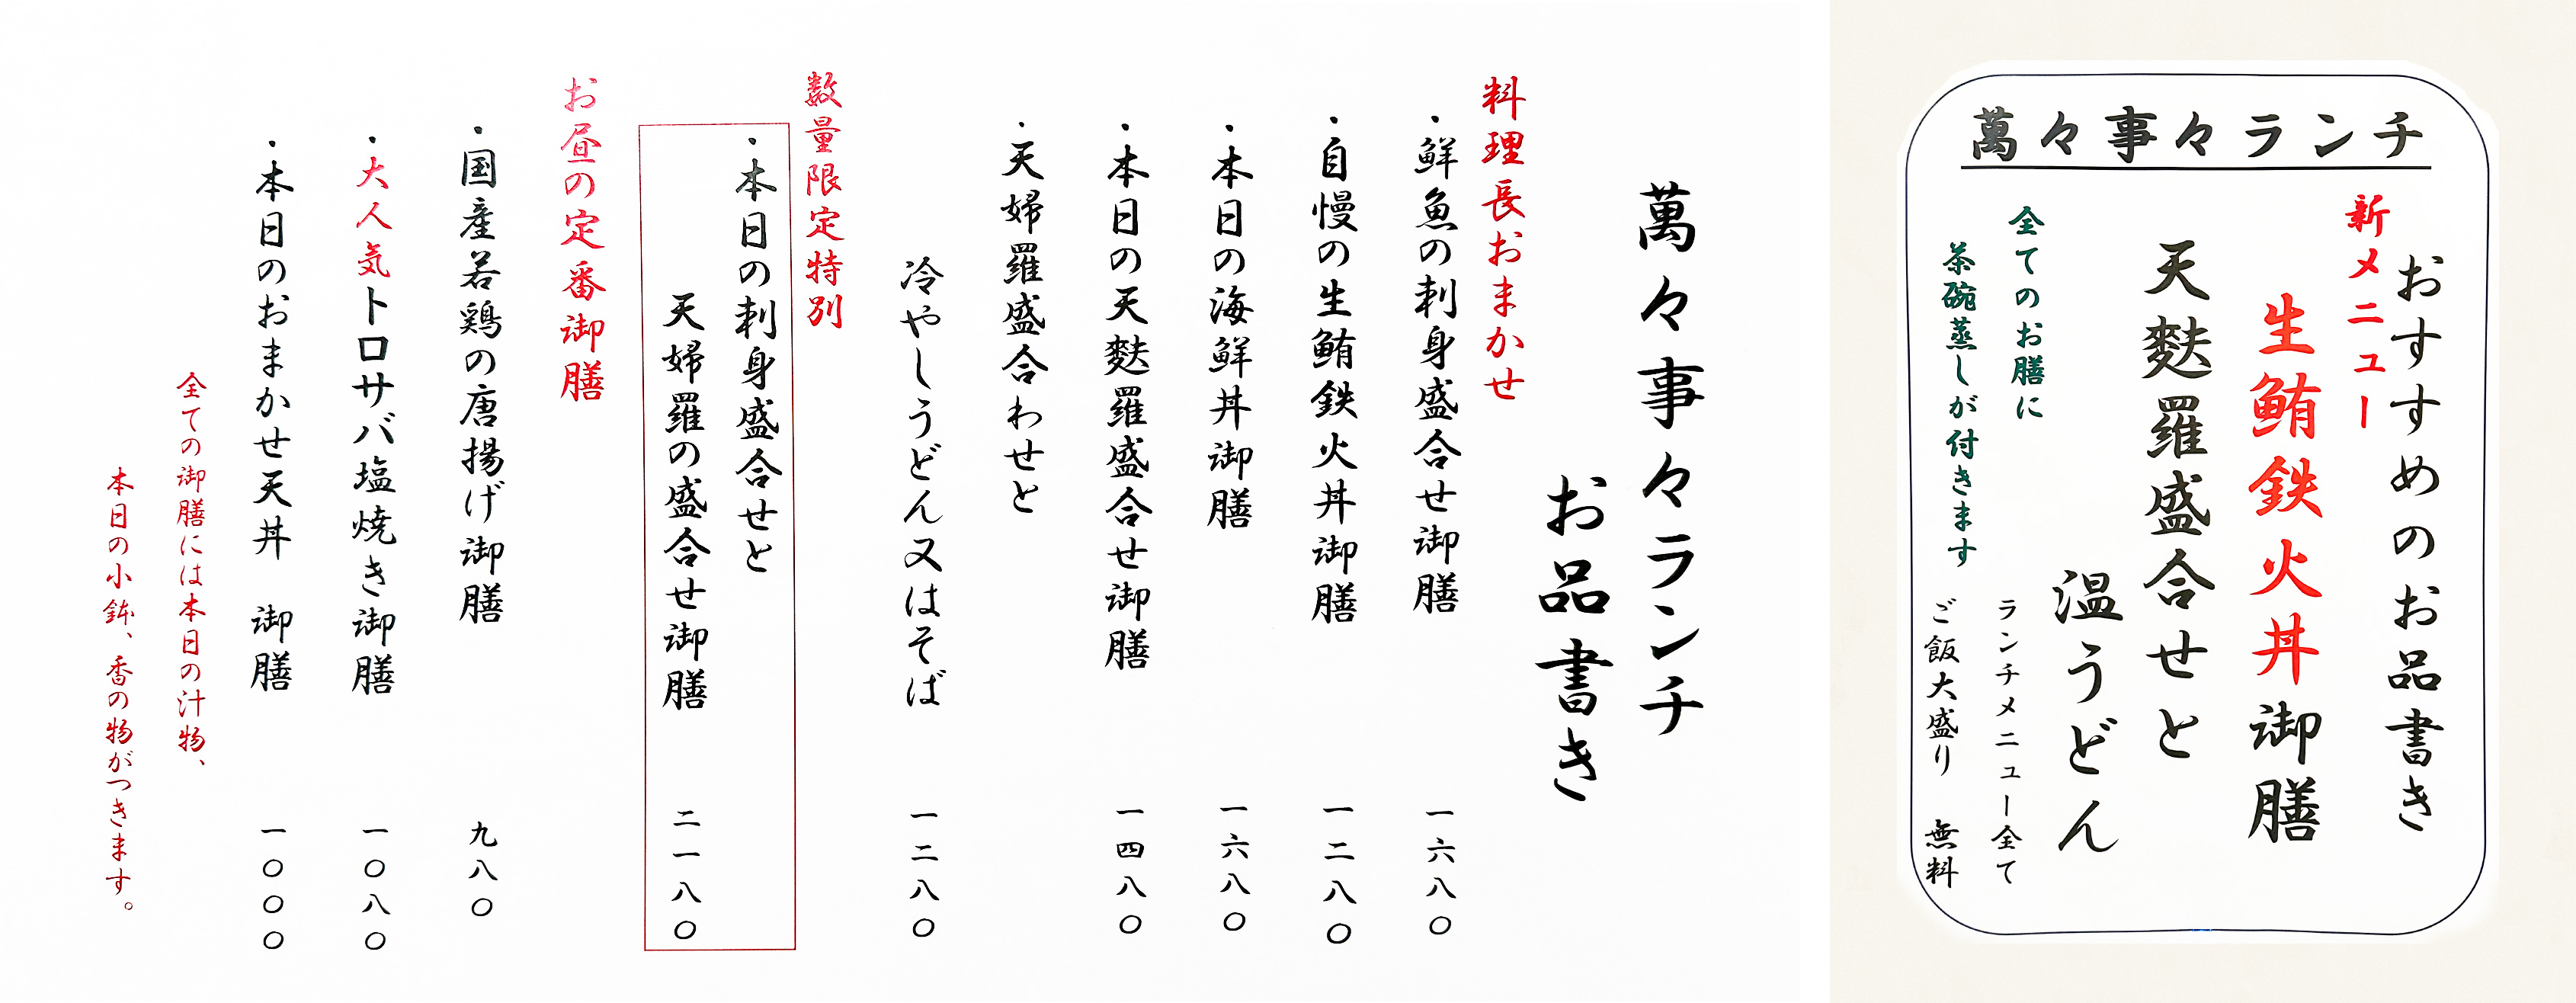 萬々事々ランチ
お品書き
料理長おまかせ
・鮮魚の刺身盛合せ御膳 一六八〇
・自慢の生鮪鉄火丼御膳 一二八〇
・本日の海鮮丼御膳 一六八〇
・本日の天麩羅盛合せ御膳 一四八〇
・天婦羅盛合わせと
冷やしうどん又はそば 一二八〇
数量限定特別
・本日の刺身盛合せと
天婦羅の盛合せ御膳 二一八〇
お昼の定番御膳
・国産若鶏の唐揚げ御膳 九八〇
・大人気トロサバ塩焼き御膳 一〇八〇
・本日のおまかせ天丼 御膳 一〇〇〇
全ての御膳には本日の汁物、
本日の小鉢、香の物がつきます。
萬々事々ランチ
おすすめのお品書き
新メニュー
生鮪鉄火丼御膳
天麩羅盛合せと
温うどん
全てのお膳に
茶碗蒸しが付きます
ランチメニュー全て
ご飯大盛り 無料